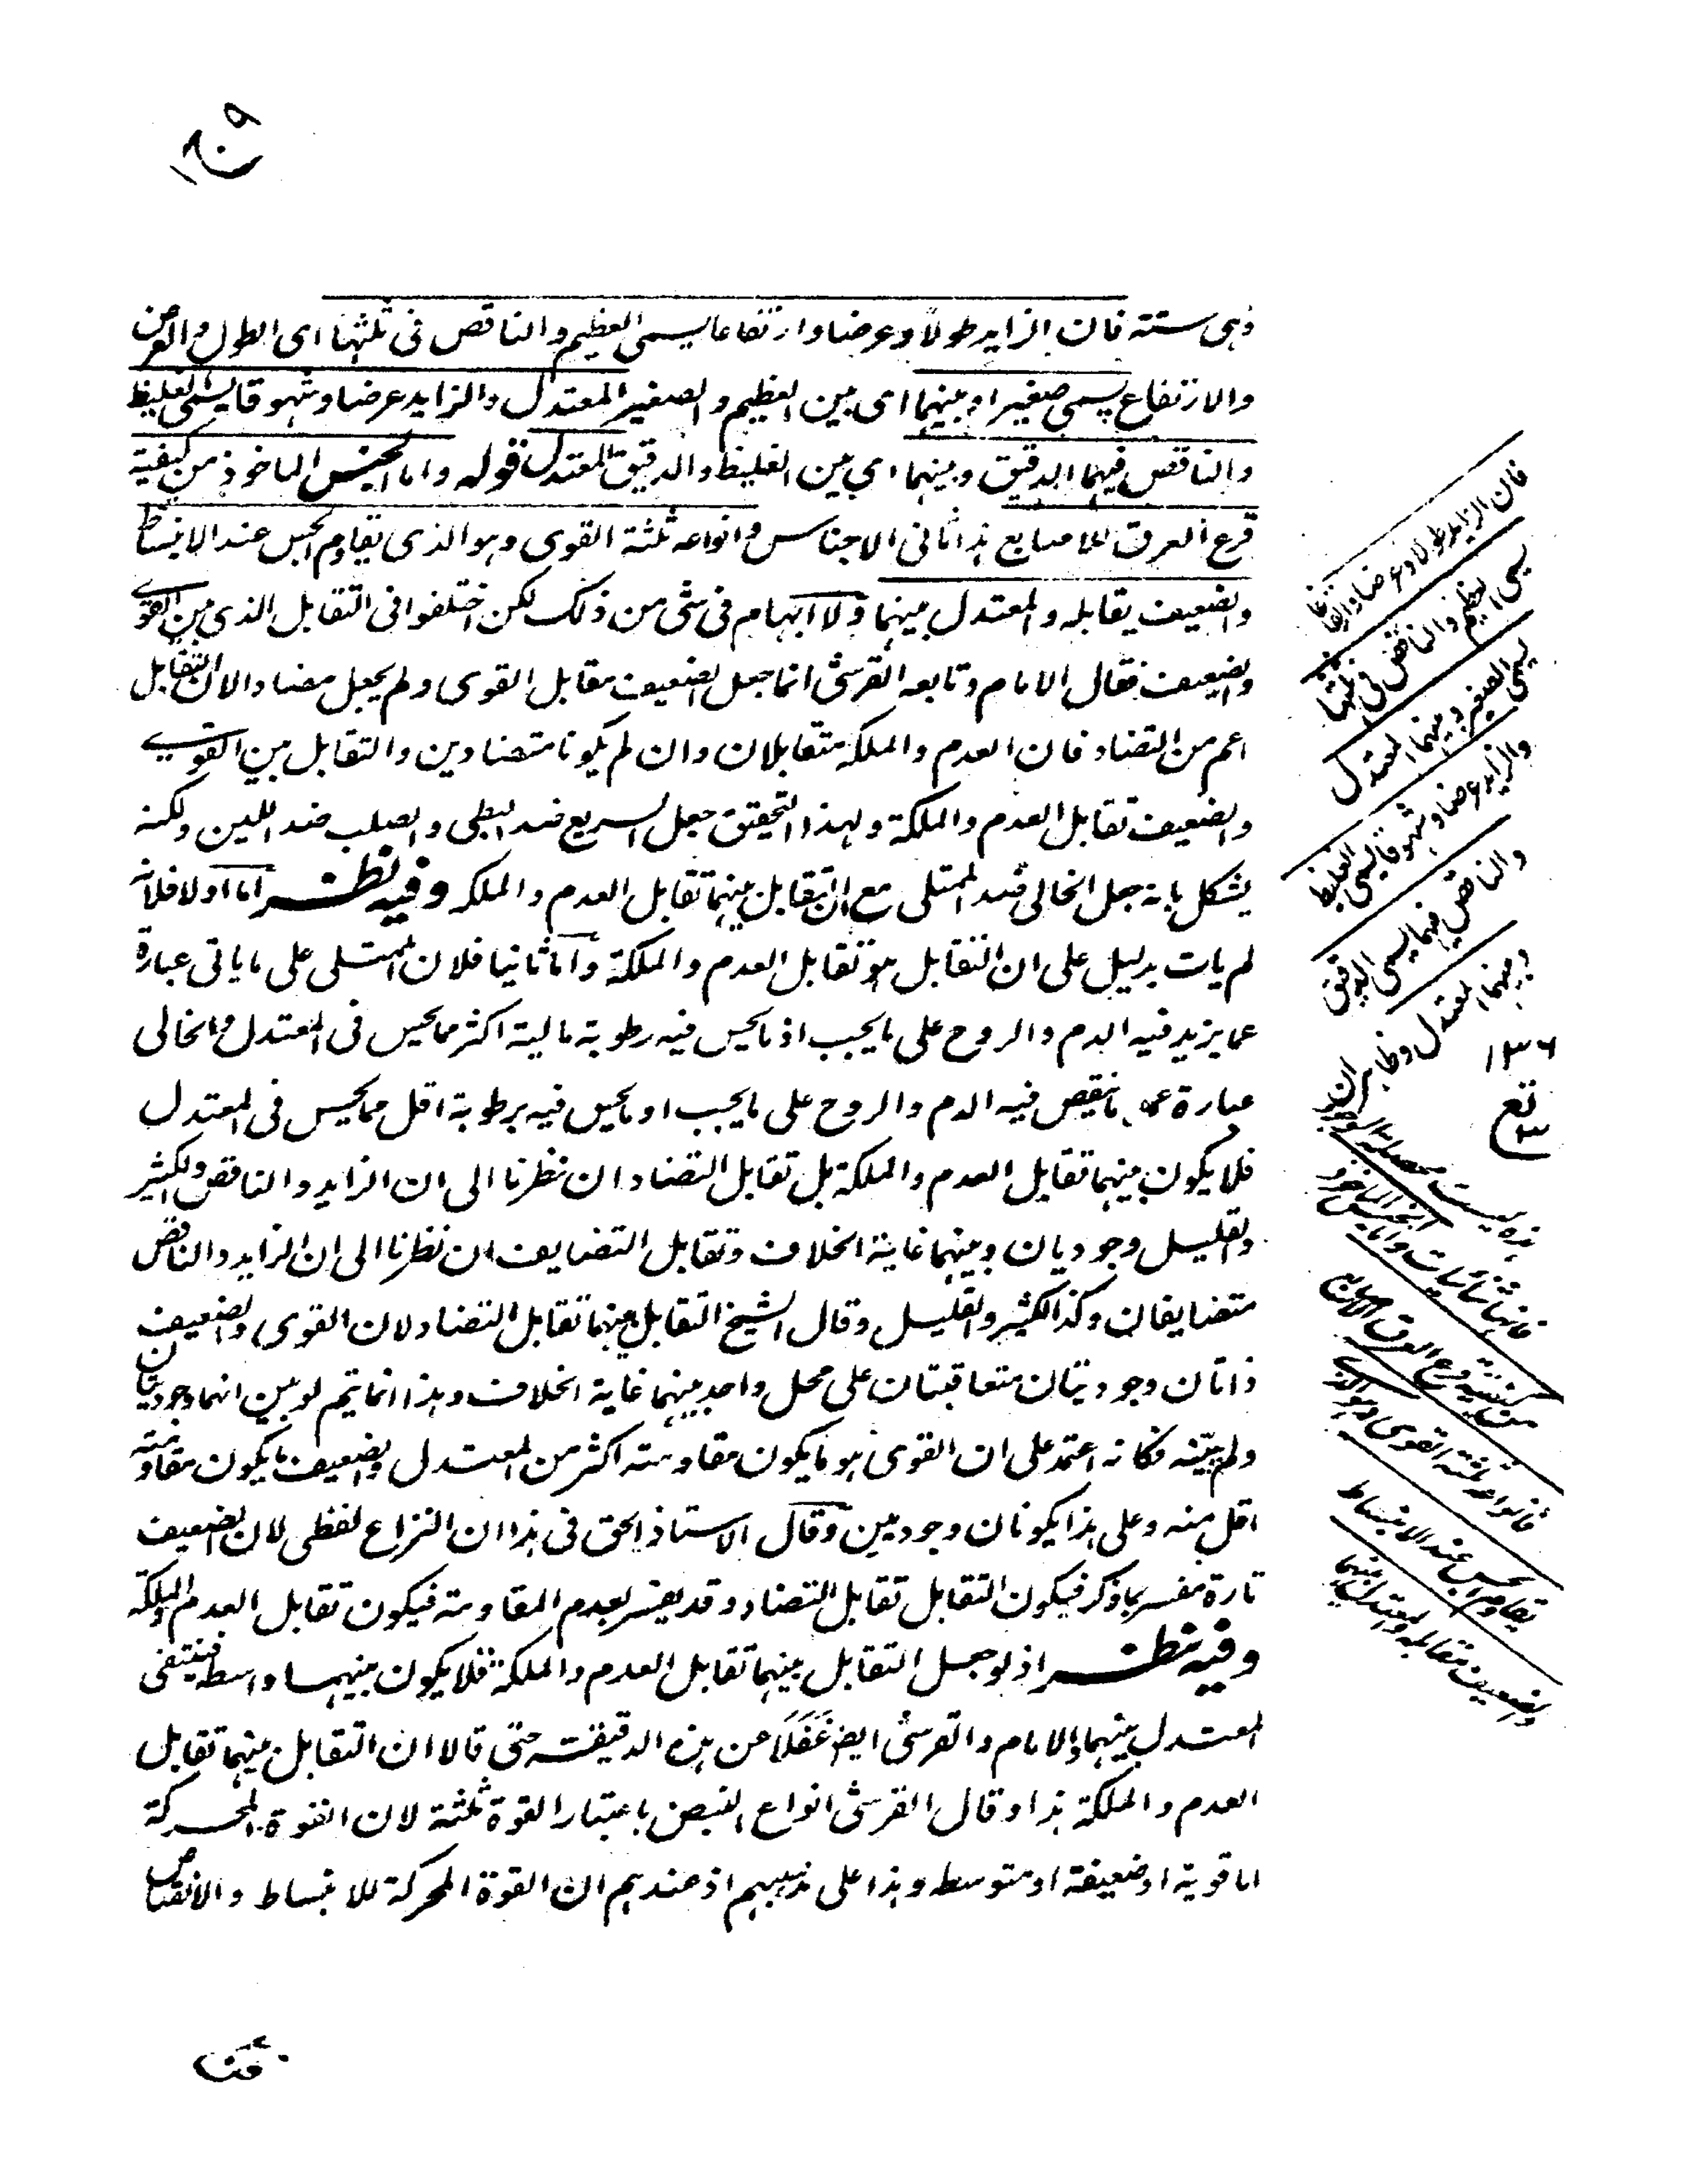 فهى ستة فان الزايد طولا وعرضا وارتفاعا يسمى العظيم والناقص فى ثلثها اى الطول والعرض
والارتفاع يسمى صغيرا وبينهما اى بين العظيم والصغير المعتدل والزايد عرضا وشهوقا يسمى الغليظ
والناقص فيهما الدقيق وبينهما اى بين الغليظ والدقيق المعتدل قوله واما الجنس الماخوذ من كيفية
قرع العرق للاصابع هذا ثانى الاجناس وانواعه ثلثة القوى وهو الذى يقاوم الجس عند الانبساط
والضعيف يقابله والمعتدل بينهما ولا ابهام فى شى من ذلك لكن اختلفوا فى التقابل الذى بين القوى
والضعيف فقال الامام وتابعه القرشى انما جعل الضعيف مقابل القوى ولم يجعل مضادا لان التقابل
اعم من التضاد فان العدم والملكة متقابلان وان لم يكونا متضادين والتقابل بين القوى
والضعيف تقابل العدم والملكة ولهذا التحقيق جعل السريع ضد البطى والصلب ضد اللين ولكنه
يشكل بانه جعل الخالى ضد الممتلى مع ان التقابل بينهما تقابل العدم والملكة وفيه نظر اما اولا فلانه
لم يات بدليل على ان التقابل هو تقابل العدم والملكة واما ثانيا فلان الممتلى على ما ياتى عبارة
عما يزيد فيه الدم والروح على ما يجب او ما يحس فيه رطوبة مالية اكثر مما يحس فى المعتدل والخالى
عبارة عما ينقص فيه الدم والروح على ما يجب او ما يحس فيه برطوبة اقل مما يحس فى المعتدل
فلا يكون بينهما تقابل العدم والملكة بل تقابل التضاد ان نظرنا الى ان الزايد والناقص والكثير
والقليل وجوديان وبينهما غاية الخلاف وتقابل التضايف ان نظرنا الى ان الزايد والناقص
متضايفان وكذا الكثير والقليل وقال الشيخ التقابل بينهما تقابل التضاد لان القوى والضعيف
ذاتان وجوديتان متعاقبتان على محل واحد بينهما غاية الخلاف وهذا انما يتم لو بين انهما وجوديتان
ولم يبينه فكانه اعتمد على ان القوى هو ما يكون مقاومته اكثر من المعتدل والضعيف ما يكون مقاومته
اقل منه وعلى هذا يكونان وجوديين وقال الاستاذ الحق فى هذا ان النزاع لفظى لان الضعيف
تارة مفسر بما ذكر فيكون التقابل تقابل التضاد وقد يفسر بعدم المقاومة فيكون تقابل العدم والملكة
وفيه نظر اذ لو جعل التقابل بينهما تقابل العدم والملكة فلا يكون بينهما واسطة فينتفى
المعتدل بينهما والامام والقرشى ايضا غفلا عن هذه الدقيقة حتى قالا ان التقابل بينهما تقابل
العدم والملكة هذا وقال القرشى انواع النبض باعتبار القوة ثلثة لان القوة المحركة
اما قوية او ضعيفة او متوسطة وهذا على مذهبهم اذ عندهم ان القوة المحركة للانبساط والانقباض
فان الزايد طولا وعرضا وارتفاعا
يسمى العظيم والناقص فى ثلثها
يسمى الصغير وبينهما المعتدل
والزايد عرضا وشهوقا يسمى الغليظ
والناقص فيهما يسمى الدقيق
وبينهما معتدل
١٣٦
واما الجنس الماخوذ
من كيفية قرع العرق للاصابع
فانواعه ثلثة القوى وهو الذى
يقاوم الجس عند الانبساط
والضعيف مقابله والمعتدل بينهما